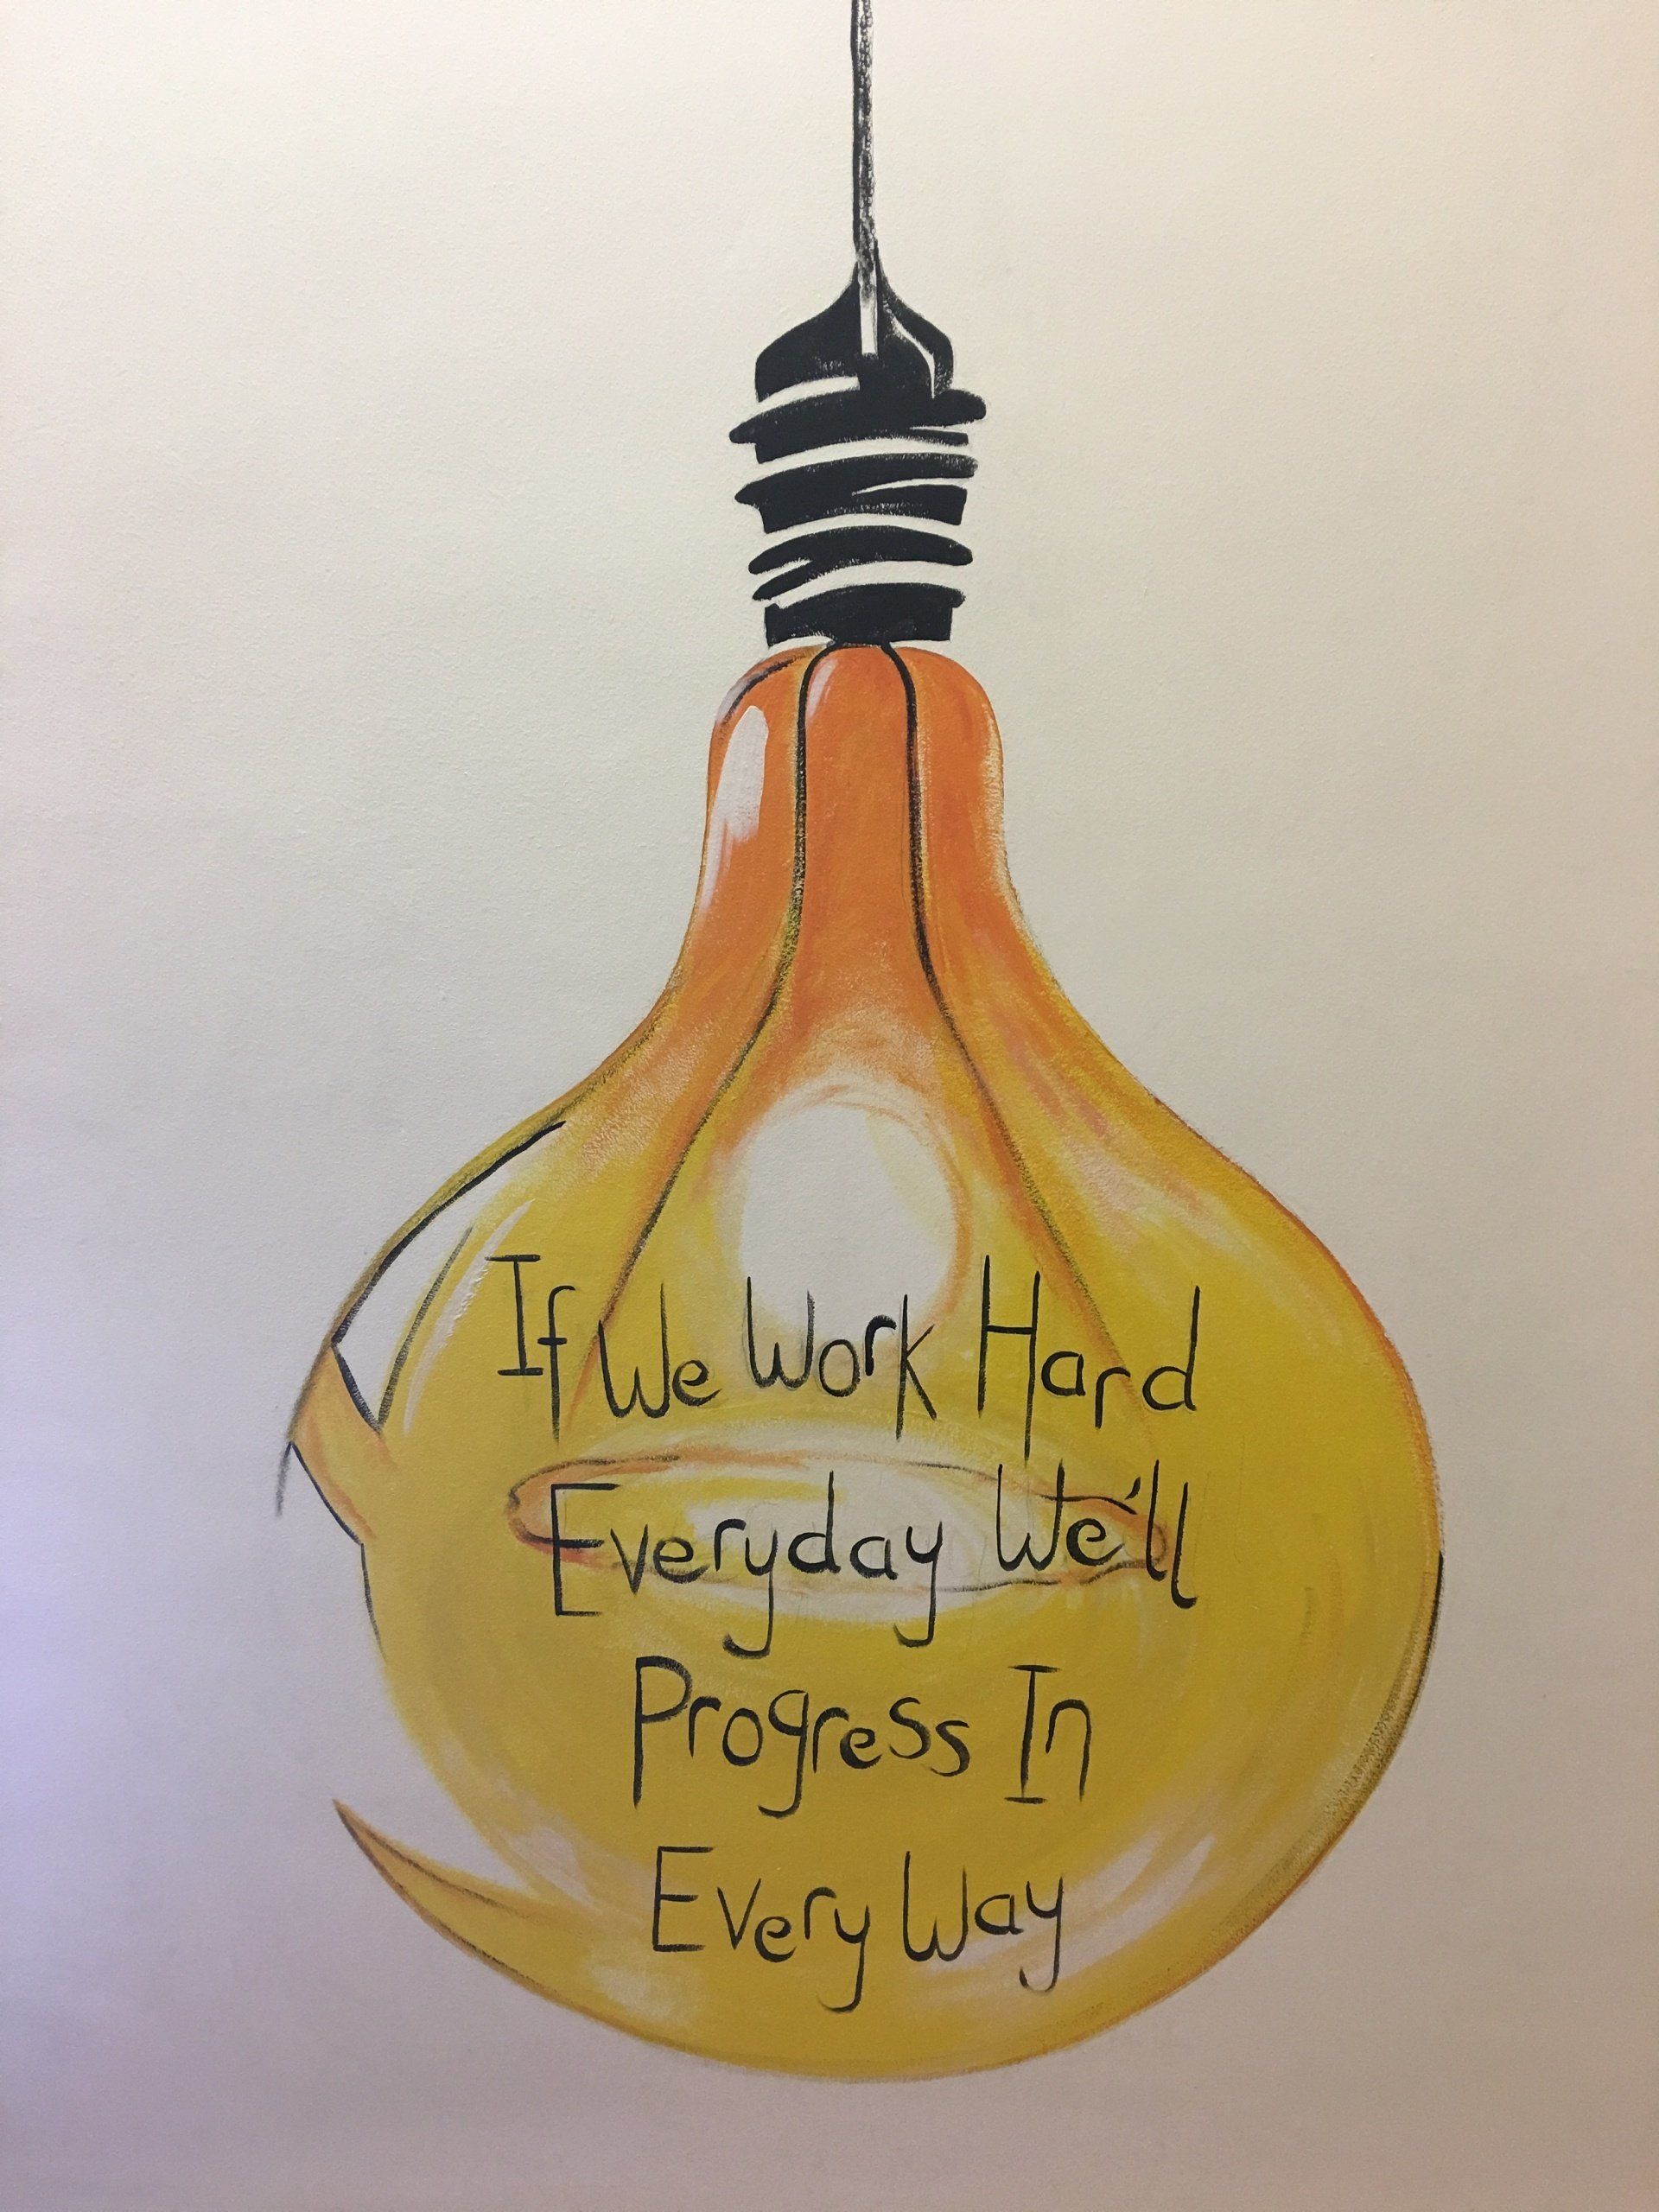 If We Work Hard
Everyday We'll
Progress In
Every Way